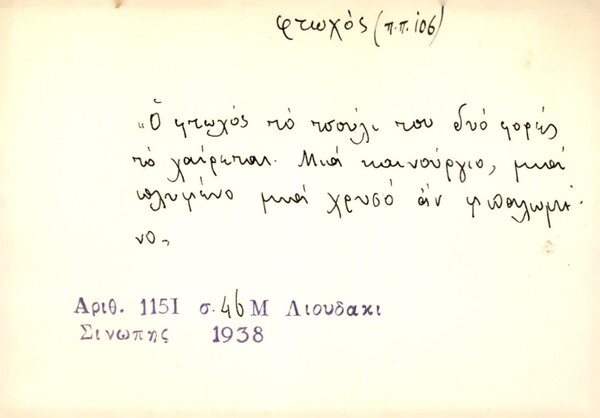 φτωχός (π.π. 106)
"Ὁ φτωχός τό τσούλι του δυό φορές
τό χαίρεται. Μιά καινούργιο, μιά
πλυμένο μιά χρυσό ἄν
νο,
Αριθ. 1151 σ. 46 Μ Λιουδακι
Σινωπης 1938